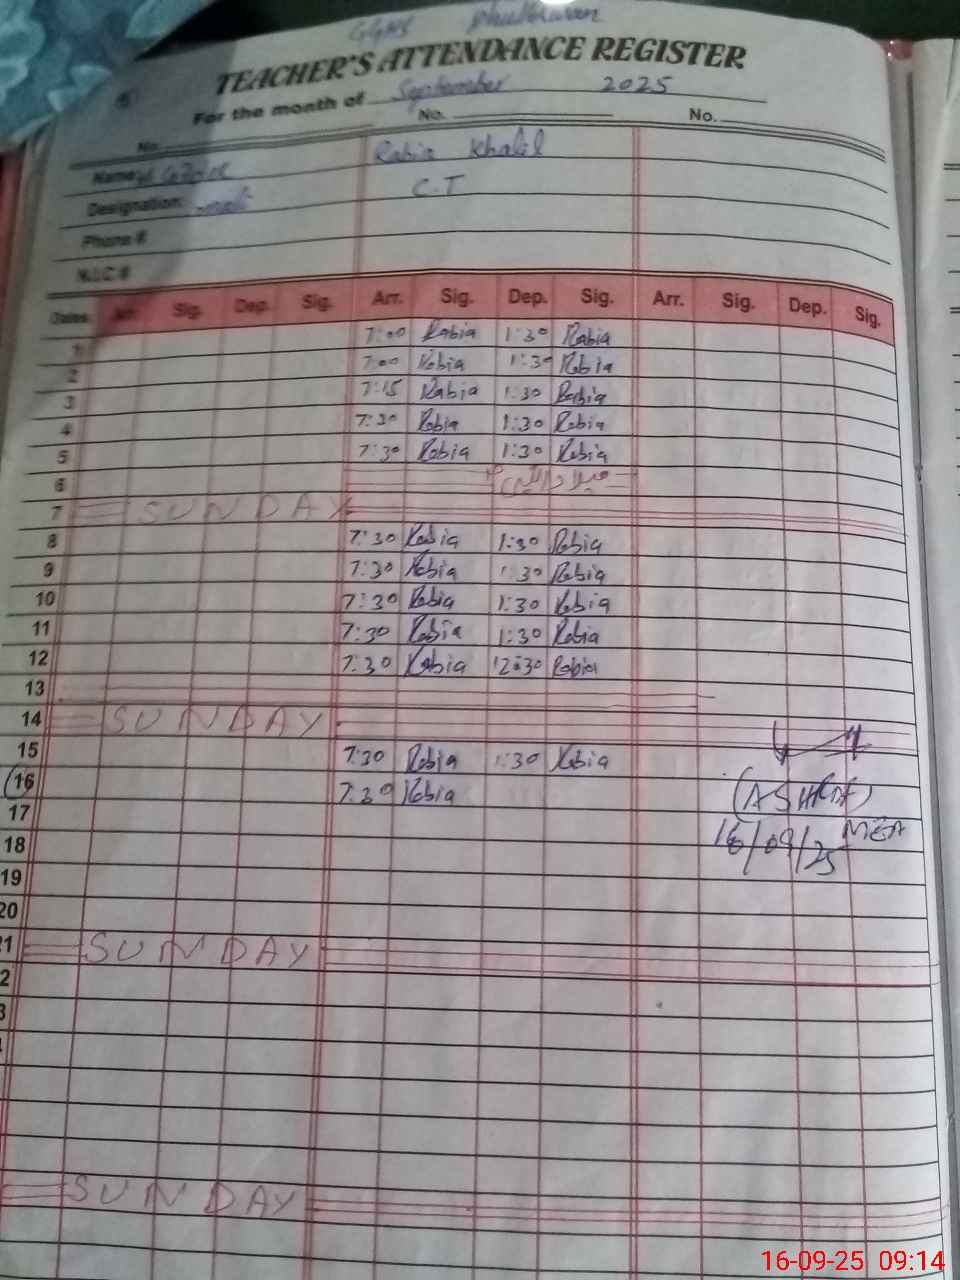 TEACHER'S ATTENDANCE REGISTER
For the month of September 2025
No. No. No.
Name: Rabia Khalil
Designation: C.T
Phone #
N.I.C #
Dates Arr. Sig. Dep. Sig. Arr. Sig. Dep. Sig. Arr. Sig. Dep. Sig.
1 7:00 Rabia 1:30 Rabia
2 7:00 Rabia 1:30 Rabia
3 7:15 Rabia 1:30 Rabia
4 7:30 Rabia 1:30 Rabia
5 7:30 Rabia 1:30 Rabia
6
7 SUNDAY
8 7:30 Rabia 1:30 Rabia
9 7:30 Rabia 1:30 Rabia
10 7:30 Rabia 1:30 Rabia
11 7:30 Rabia 1:30 Rabia
12 7:30 Rabia 12:30 Rabia
13
14 SUNDAY
15 7:30 Rabia 1:30 Rabia
16 7:30 Rabia
17
18
19
20
21 SUNDAY
2
3
SUNDAY
MEA
16/09/25
16-09-25 09:14